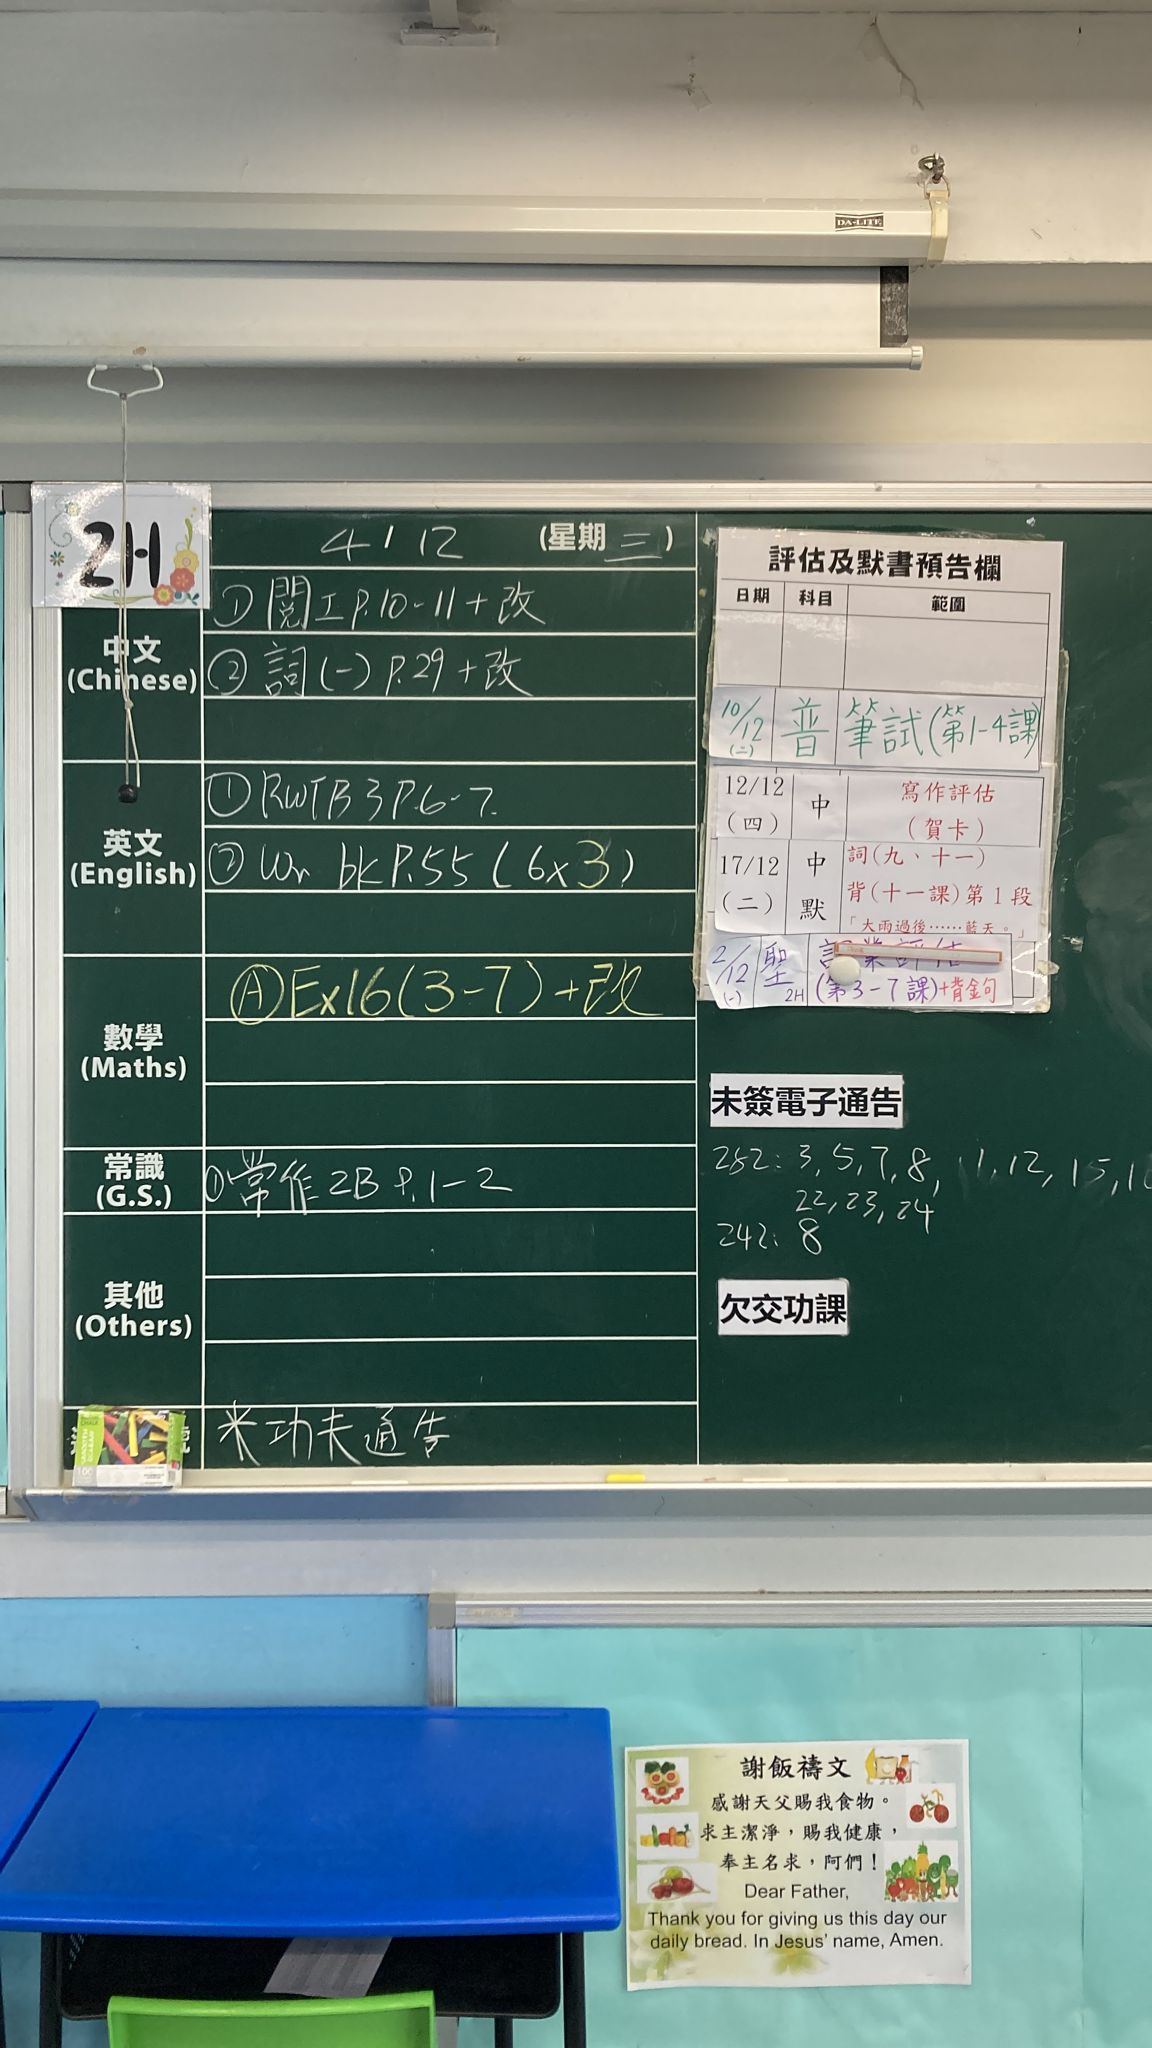 DA-LITE
2H
4/12 (星期三)
中文
(Chinese)
① 閱工P.10-11+改
② 詞(一) P.29+改
英文
(English)
① RWTB 3 P.6-7
② Wr bk P.55 (6x3)
數學
(Maths)
Ⓐ Ex16(3-7)+改
常識
(G.S.)
① 常作 2B P.1-2
其他
(Others)
米功未通告
評估及默書預告欄
日期 科目 範圍
10/12 (二) 普 筆試(第1-4課)
12/12 (四) 中 寫作評估
(賀卡)
17/12 (二) 中默 詞(九、十一)
背(十一課)第1段
「大雨過後……藍天。」
2/12 (一) 聖 2H 課業評估
(第3-7課)+背金句
未簽電子通告
282: 3, 5, 7, 8, 11, 12, 15,
22, 23, 24
242: 8
欠交功課
謝飯禱文
感謝天父賜我食物。
求主潔淨,賜我健康,
奉主名求,阿們!
Dear Father,
Thank you for giving us this day our
daily bread. In Jesus' name, Amen.